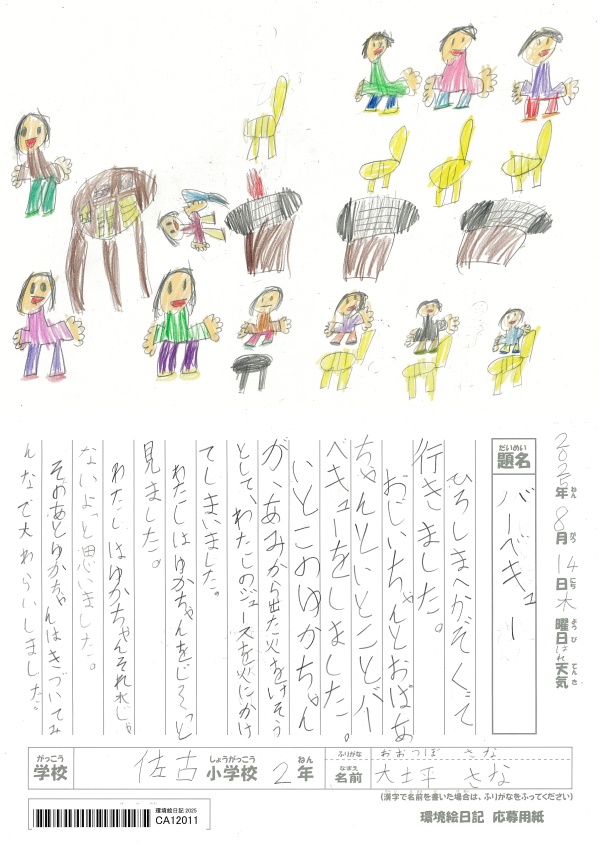 2025年ねん 8月がつ 14日にち 木曜日ようび はれ天気てんき
だいめい
題名
バーベキュー
ひろしまへかぞくで
行きました。
おじいちゃんとおばあ
ちゃんといとことバー
ベキューをしました。
いとこのゆかちゃん
が、あみから出た火をけそう
として、わたしのジュースを火にかけ
てしまいました。
わたしはゆかちゃんをじろっと
見ました。
わたしはゆかちゃんそれ水じゃ
ないよっと思いました。
そのあとゆかちゃんはきづいてみ
んなで大わらいしました。
がっこう
学校
佐古 小学校しょうがっこう 2年ねん
ふりがな おおつぼ さな
なまえ
名前 大坪 さな
(漢字で名前を書いた場合は、ふりがなをふってください)
環境絵日記 2025
CA12011
環境絵日記 応募用紙